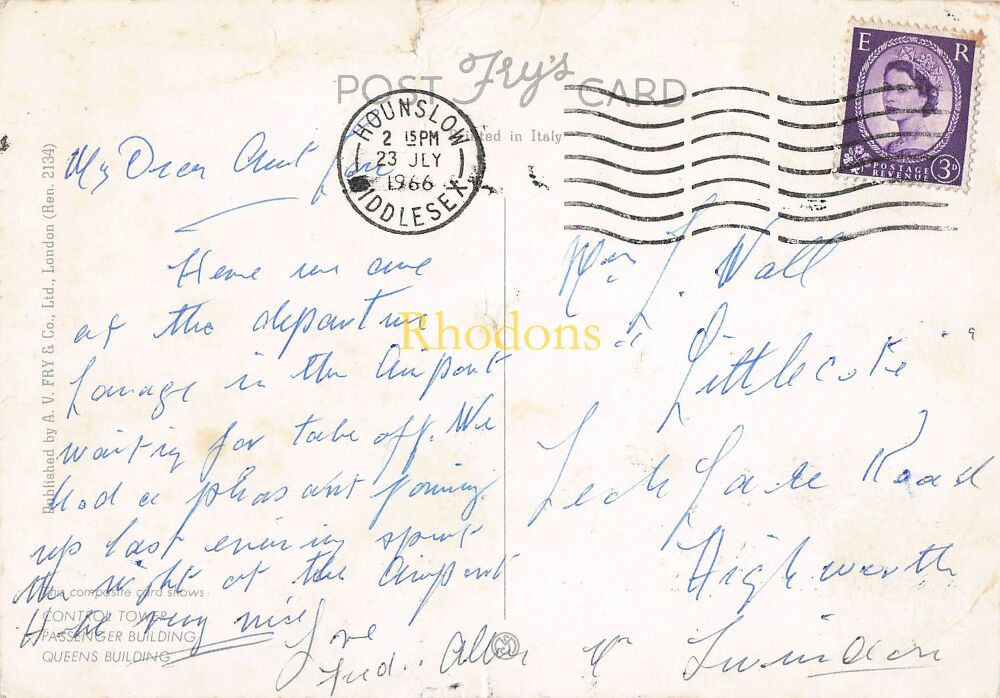 POST Fry's CARD
Printed in Italy
HOUNSLOW
2 15 PM
23 JLY
1966
MIDDLESEX
E R
POSTAGE
REVENUE
3D
Published by A. V. FRY & Co., Ltd., London (Ren. 2134)
My Dear Aunt
Here we are
at the departure
Lounge in the Airport
waiting for take off. We
had a pleasant journey
up last evening spent
the night at the Airport
Hotel very nice
Love
Fred
This composite card shows:
CONTROL TOWER
PASSENGER BUILDING
QUEENS BUILDING
Mrs J. Wall
Littlecote
Lechlade Road
Highworth
Nr Swindon
Rhodons